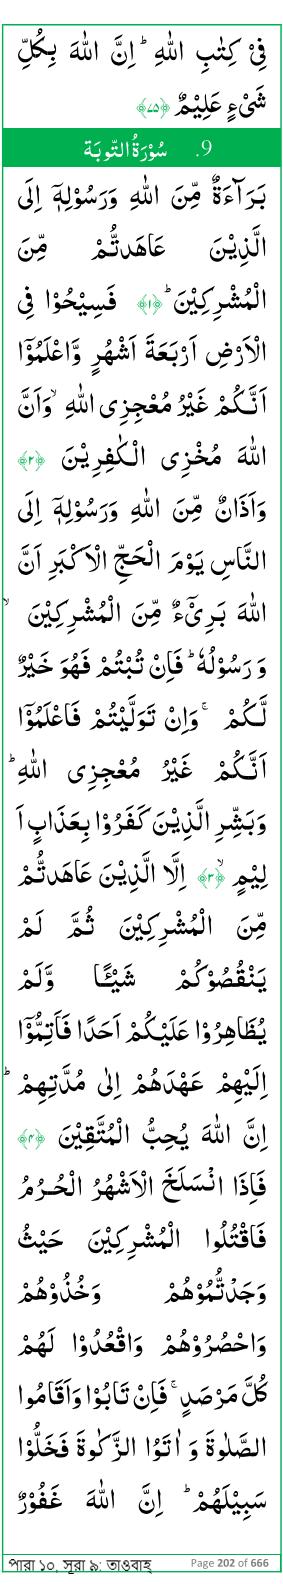 فِیْ كِتٰبِ اللّٰهِ ؕ اِنَّ اللّٰهَ بِكُلِّ
شَیْءٍ عَلِیْمٌ ﴿۷۵﴾
9. سُوْرَۃُ التَّوبَة
بَرَآءَةٌ مِّنَ اللّٰهِ وَرَسُوْلِهٖۤ اِلَی
الَّذِیْنَ عَاهَدتُّمْ مِّنَ
الْمُشْرِكِیْنَ ؕ ﴿۱﴾ فَسِیْحُوْا فِی
الْاَرْضِ اَرْبَعَةَ اَشْهُرٍ وَّاعْلَمُوْۤا
اَنَّكُمْ غَیْرُ مُعْجِزِی اللّٰهِ ۙ وَاَنَّ
اللّٰهَ مُخْزِی الْكٰفِرِیْنَ ﴿۲﴾
وَاَذَانٌ مِّنَ اللّٰهِ وَرَسُوْلِهٖۤ اِلَی
النَّاسِ یَوْمَ الْحَجِّ الْاَكْبَرِ اَنَّ
اللّٰهَ بَرِیْٓءٌ مِّنَ الْمُشْرِكِیْنَ ۙ
وَ رَسُوْلُهٗ ؕ فَاِنْ تُبْتُمْ فَهُوَ خَیْرٌ
لَّكُمْ ۚ وَاِنْ تَوَلَّیْتُمْ فَاعْلَمُوْۤا
اَنَّكُمْ غَیْرُ مُعْجِزِی اللّٰهِ ؕ
وَبَشِّرِ الَّذِیْنَ كَفَرُوْا بِعَذَابٍ اَ
لِیْمٍ ۙ ﴿۳﴾ اِلَّا الَّذِیْنَ عَاهَدتُّمْ
مِّنَ الْمُشْرِكِیْنَ ثُمَّ لَمْ
یَنْقُصُوْكُمْ شَیْـًٔا وَّلَمْ
یُظَاهِرُوْا عَلَیْكُمْ اَحَدًا فَاَتِمُّوْۤا
اِلَیْهِمْ عَهْدَهُمْ اِلٰی مُدَّتِهِمْ ؕ
اِنَّ اللّٰهَ یُحِبُّ الْمُتَّقِیْنَ ﴿۴﴾
فَاِذَا انْسَلَخَ الْاَشْهُرُ الْحُرُمُ
فَاقْتُلُوا الْمُشْرِكِیْنَ حَیْثُ
وَجَدْتُّمُوْهُمْ وَخُذُوْهُمْ
وَاحْصُرُوْهُمْ وَاقْعُدُوْا لَهُمْ
كُلَّ مَرْصَدٍ ۚ فَاِنْ تَابُوْا وَاَقَامُوا
الصَّلٰوةَ وَ اٰتَوُا الزَّكٰوةَ فَخَلُّوْا
سَبِیْلَهُمْ ؕ اِنَّ اللّٰهَ غَفُوْرٌ
পারা ১০, সূরা ৯: তাওবাহ্ Page 202 of 666